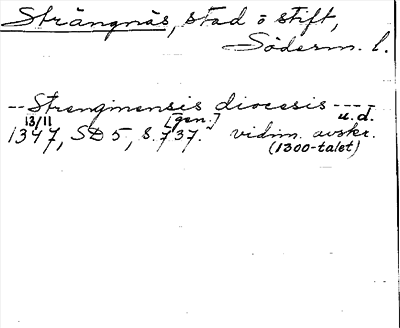 Strängnäs, stad o stift,
Söderm. l.
-- Strenginensis diocesis ----
13/11 [gen.] u.d.
1347, SD 5, s. 737. vidim. avskr.
(1300-talet)